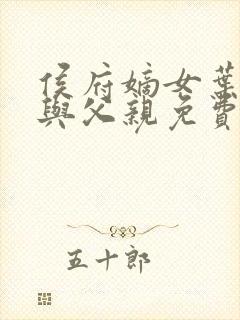 侯府嫡女葉
與父親免費
五十郎